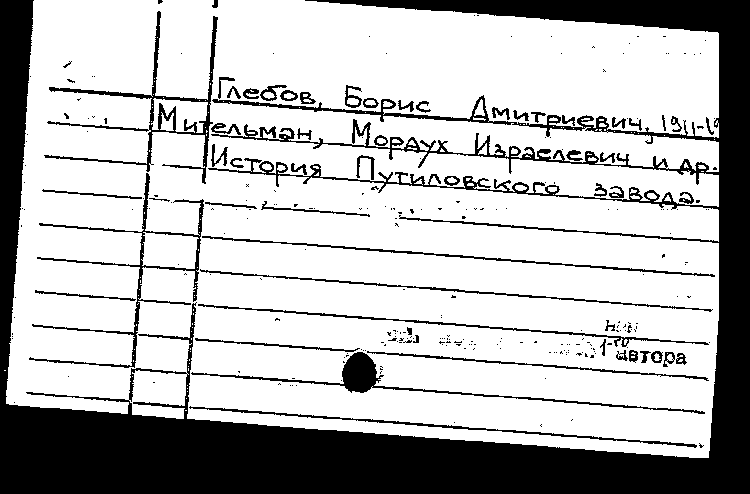 Глебов, Борис Дмитриевич, 1911-
Мительман, Мордух Израелевич и др.
История Путиловского завода.
1-го автора